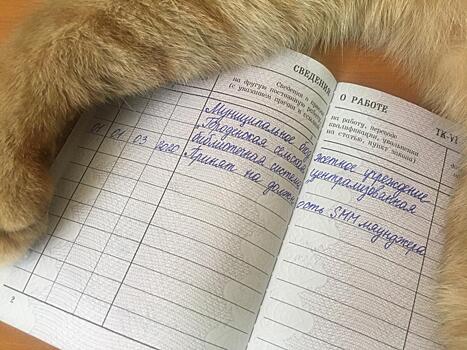 СВЕДЕНИЯ О РАБОТЕ
ТК-VI
Сведения о
на другую постоянную работу,
(с указанием причин и
на работу, переводе
квалификации, увольнении
на статью, пункт закона)
Муниципальное бюджетное учреждение
сельская централизованная
библиотечная система
1 01 03 2020 Принят на должность SMM мяунджера
2